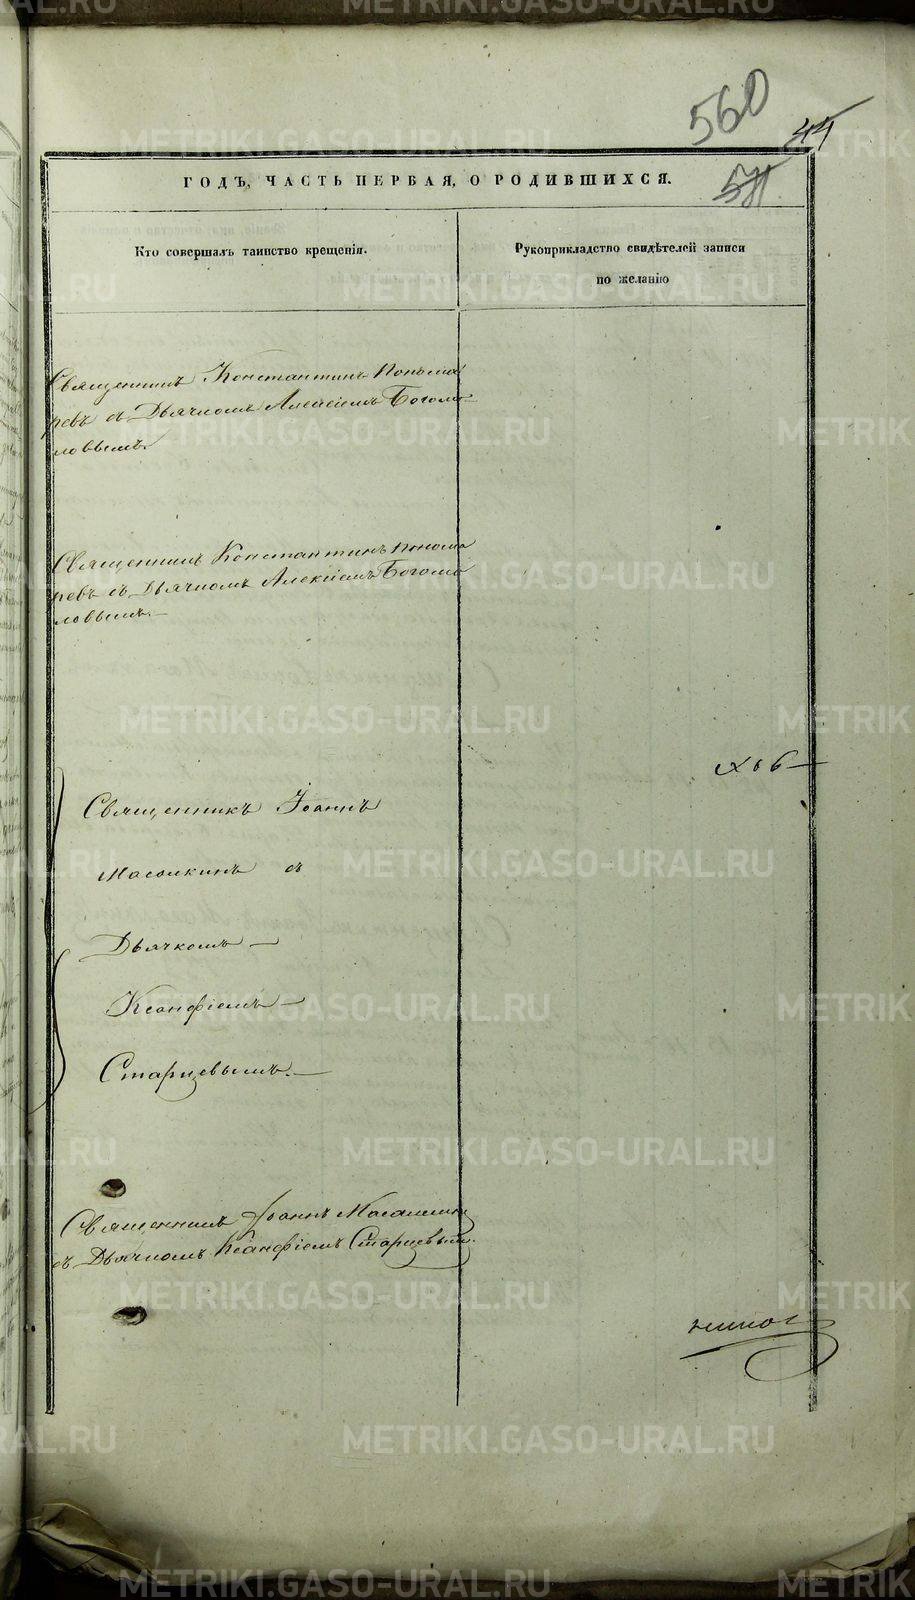 560
44
571
ГОДЪ, ЧАСТЬ ПЕРВАЯ, О РОДИВШИХСЯ.
Кто совершалъ таинство крещенія.
Рукоприкладство свидѣтелей записи
по желанію
Священникъ Константинъ Понома
ревъ съ Дьячкомъ Алексіемъ Богомо
ловымъ.
Священникъ Константинъ Понома
ревъ съ Дьячкомъ Алексіемъ Богомо
ловымъ.
Священникъ Іоаннъ
Масалкинъ съ
Дьячкомъ
Ксанфіемъ
Старцевымъ.
Священникъ Іоаннъ Масалкинъ
съ Дьячкомъ Ксанфіемъ Старцевымъ.
METRIKI.GASO-URAL.RU